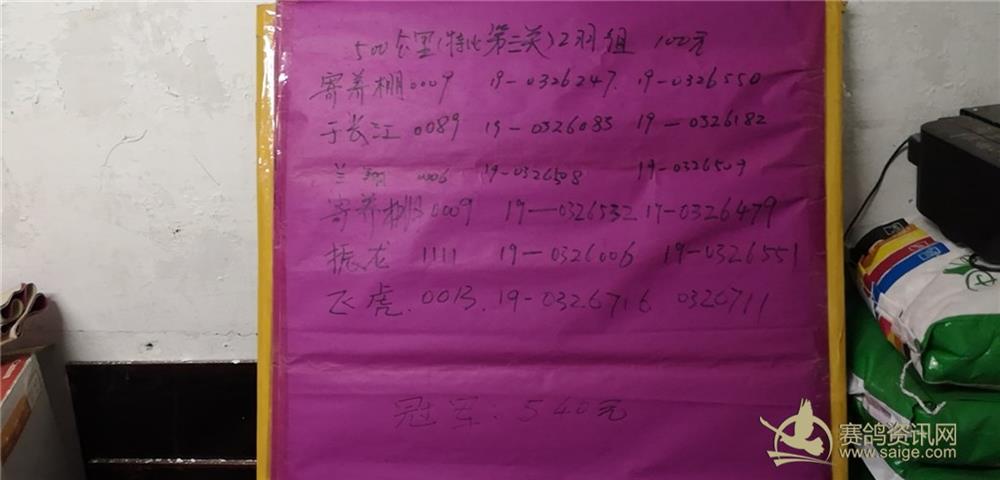 500公里(特比第三关)2羽组 100元
寄养棚0009 19-0326247. 19-0326550
于长江 0089 19-0326085 19-0326182
兰翔 006 19-0326508 19-0326509
寄养棚0009 19-0326532 19-0326479
振龙 1111 19-0326006 19-0326551
飞虎. 0013. 19-0326716 0326711
冠军: 540元
赛鸽资讯网
www.saige.com